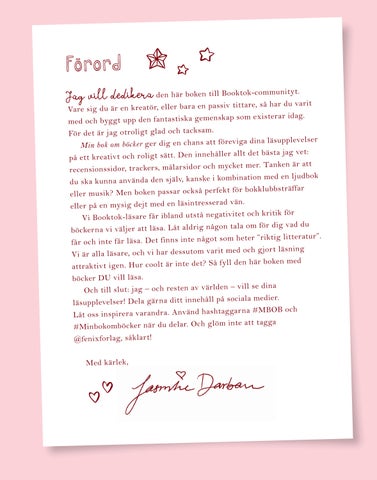 Förord
Jag vill dedikera den här boken till Booktok-communityt.
Vare sig du är en kreatör, eller bara en passiv tittare, så har du varit
med och byggt upp den fantastiska gemenskap som existerar idag.
För det är jag otroligt glad och tacksam.
Min bok om böcker ger dig en chans att föreviga dina läsupplevelser
på ett kreativt och roligt sätt. Den innehåller allt det bästa jag vet:
recensionssidor, trackers, målarsidor och mycket mer. Tanken är att
du ska kunna använda den själv, kanske i kombination med en ljudbok
eller musik? Men boken passar också perfekt för bokklubbsträffar
eller på en mysig dejt med en läsintresserad vän.
Vi Booktok-läsare får ibland utstå negativitet och kritik för
böckerna vi väljer att läsa. Låt aldrig någon tala om för dig vad du
får och inte får läsa. Det finns inte något som heter ”riktig litteratur”.
Vi är alla läsare, och vi har dessutom varit med och gjort läsning
attraktivt igen. Hur coolt är inte det? Så fyll den här boken med
böcker DU vill läsa.
Och till slut: jag – och resten av världen – vill se dina
läsupplevelser! Dela gärna ditt innehåll på sociala medier.
Låt oss inspirera varandra. Använd hashtaggarna #MBOB och
#Minbokomböcker när du delar. Och glöm inte att tagga
@fenixforlag, såklart!
Med kärlek,
Jasmine Darban